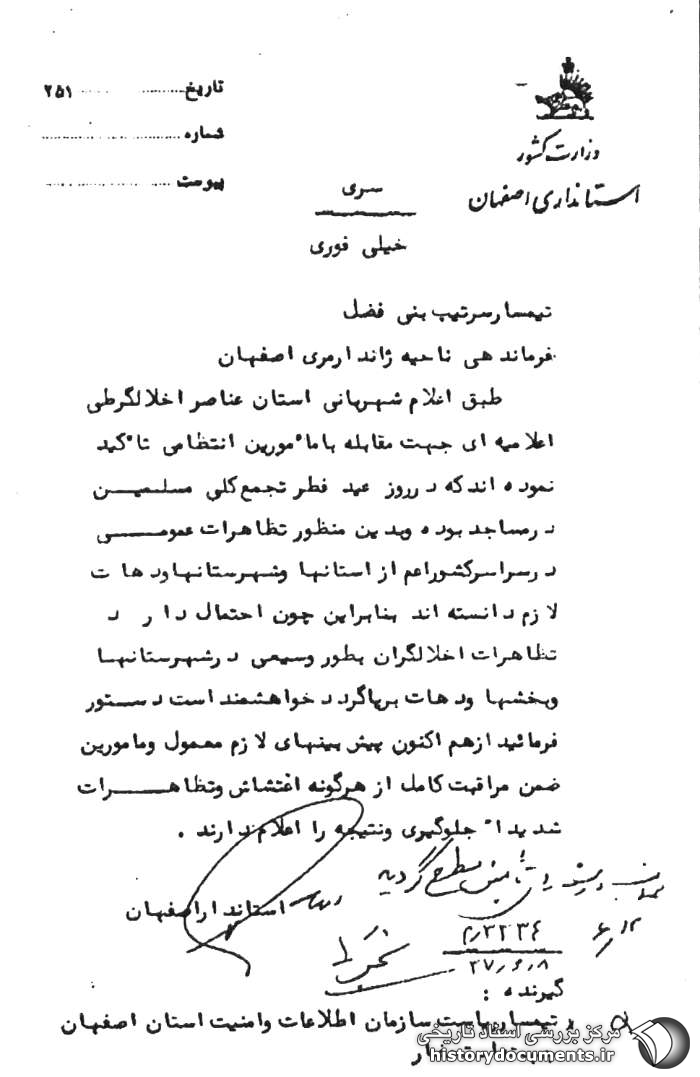 تاریخ ۲۵۱
شماره
پیوست
وزارت کشور
استانداری اصفهان
سری
خیلی فوری
تیمسار سرتیپ بنی فضل
فرماندهی ناحیه ژاندارمری اصفهان
طبق اعلام شهربانی استان عناصر اخلالگر طی
اعلامیه ای جهت مقابله با مأمورین انتظامی تأکید
نموده اند که در روز عید فطر تجمع کلی مسلمین
در مساجد بوده و بدین منظور تظاهرات عمومی
در سراسر کشور اعم از استانها و شهرستانها و دهات
لازم دانسته اند بنابراین چون احتمال دارد
تظاهرات اخلالگران بطور وسیعی در شهرستانها
و بخشها و دهات برپا گردد خواهشمند است دستور
فرمائید از هم اکنون پیش بینهای لازم معمول و مامورین
ضمن مراقبت کامل از هرگونه اغتشاش و تظاهرات
شدیداً جلوگیری و نتیجه را اعلام دارند .
مطرح گردید
استاندار اصفهان
۲۷٫۶٫۸
گیرنده :
تیمسار ریاست سازمان اطلاعات و امنیت استان اصفهان
مرکز بررسی اسناد تاریخی
historydocuments.ir